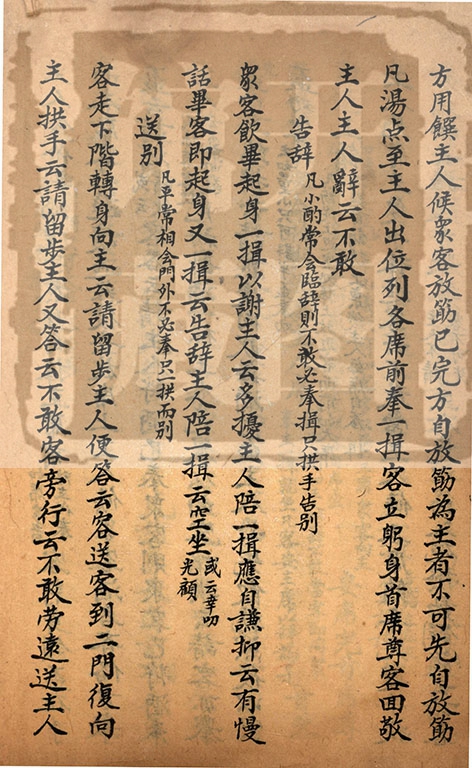 方用饌主人候眾客放筯已完方自放筯為主者不可先自放筯
凡湯点至主人出位列各席前奉一揖客立躬身首席尊客回敬
主人主人辭云不敢
告辞 凡小酌常会臨辞則不敢必奉揖只拱手告别
眾客飲畢起身一揖以謝主人云多擾主人陪一揖應自謙抑云有慢
話畢客即起身又一揖云告辞主人陪一揖云空坐 或云幸叨光顧
送别 凡平常相会門外不必奉只一拱而别
客走下階轉身向主云請留步主人便答云容送客到二門復向
主人拱手云請留步主人又答云不敢客旁行云不敢劳遠送主人